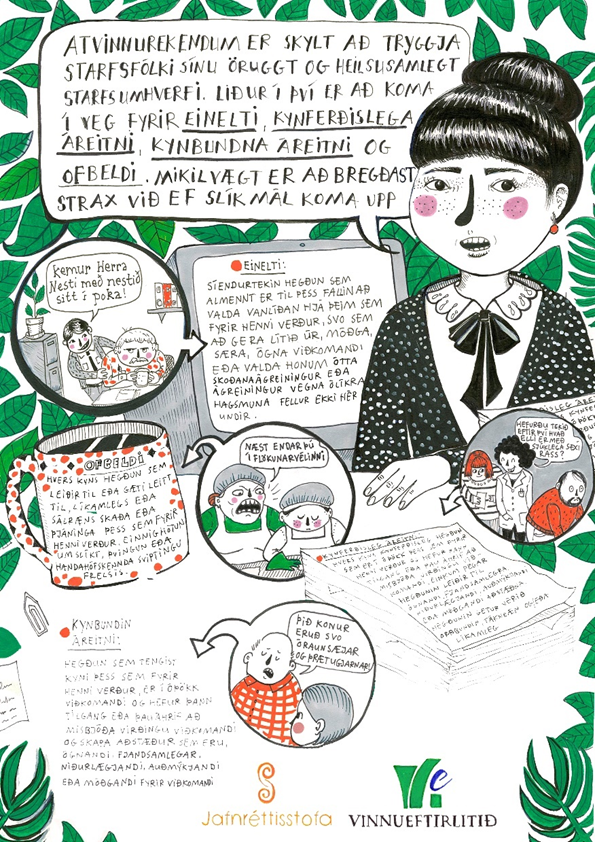 ATVINNUREKENDUM ER SKYLT AÐ TRYGGJA
STARFSFÓLKI SÍNU ÖRUGGT OG HEILSUSAMLEGT
STARFSUMHVERFI. LIÐUR Í ÞVÍ ER AÐ KOMA
Í VEG FYRIR EINELTI, KYNFERÐISLEGA
ÁREITNI, KYNBUNDNA ÁREITNI OG
OFBELDI. MIKILVÆGT ER AÐ BREGÐAST
STRAX VIÐ EF SLÍK MÁL KOMA UPP
Kemur Herra
Nesti með nestið
sitt í poka!
EINELTI:
SÍENDURTEKIN HEGÐUN SEM
ALMENNT ER TIL ÞESS FALLIN AÐ
VALDA VANLÍÐAN HJÁ ÞEIM SEM
FYRIR HENNI VERÐUR, SVO SEM
AÐ GERA LÍTIÐ ÚR, MÓÐGA,
SÆRA, ÓGNA VIÐKOMANDI
EÐA VALDA HONUM ÓTTA
SKOÐANAÁGREININGUR EÐA
ÁGREININGUR VEGNA ÓLÍKRA
HAGSMUNA FELLUR EKKI HÉR
UNDIR.
OFBELDI
HVERS KYNS HEGÐUN SEM
LEIÐIR TIL EÐA GÆTI LEITT
TIL, LÍKAMLEGS EÐA
SÁLRÆNS SKAÐA EÐA
ÞJÁNINGA ÞESS SEM FYRIR
HENNI VERÐUR, EINNIG HÓTUN
UM SLÍKT, ÞVINGUN EÐA
HANDAHÓFSKENNDA SVIPTINGU
FRELSIS.
NÆST ENDAR ÞÚ
Í FLÖKUNARVÉLINNI
HEFURÐU TEKIÐ
EFTIR ÞVÍ HVAÐ
ELLI ER MEÐ
SJÚKLEGA SEXÍ
RASS?
KYNFERÐISLEG ÁREITNI
HEGÐUNIN LEIÐIR TIL
KYNBUNDIN
ÁREITNI:
HEGÐUN SEM TENGIST
KYNI ÞESS SEM FYRIR
HENNI VERÐUR, ER Í ÓÞÖKK
VIÐKOMANDI OG HEFUR ÞANN
TILGANG EÐA ÞAU ÁHRIF AÐ
MISBJÓÐA VIRÐINGU VIÐKOMANDI
OG SKAPA AÐSTÆÐUR SEM ERU,
ÓGNANDI, FJANDSAMLEGAR,
NIÐURLÆGJANDI, AUÐMÝKJANDI
EÐA MÓÐGANDI FYRIR VIÐKOMANDI
ÞIÐ KONUR
ERUÐ SVO
ÓRAUNSÆJAR
OG ÞRÆTUGJARNAR!
Jafnréttisstofa
VINNUEFTIRLITIÐ